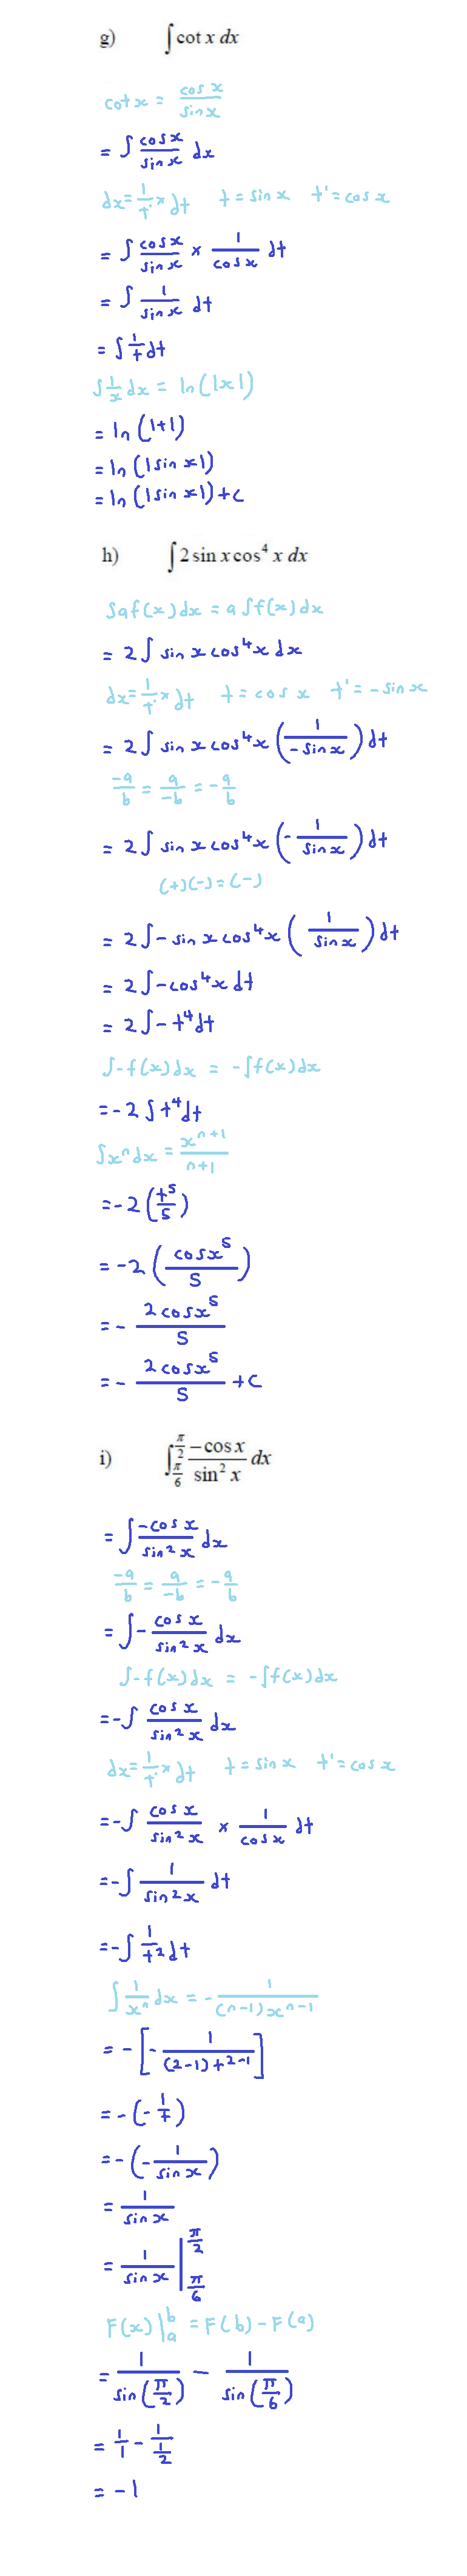 g) ∫ cot x dx
cot x = cos x / sin x
= ∫ cos x / sin x dx
dx = 1/t' × dt t = sin x t' = cos x
= ∫ cos x / sin x × 1 / cos x dt
= ∫ 1 / sin x dt
= ∫ 1/t dt
∫ 1/x dx = ln (|x|)
= ln (|t|)
= ln (|sin x|)
= ln (|sin x|) + c
h) ∫ 2 sin x cos⁴ x dx
∫ a f(x) dx = a ∫ f(x) dx
= 2 ∫ sin x cos⁴ x dx
dx = 1/t' × dt t = cos x t' = - sin x
= 2 ∫ sin x cos⁴ x (1 / - sin x) dt
-a/b = a/-b = - a/b
= 2 ∫ sin x cos⁴ x (- 1 / sin x) dt
(+)(-) = (-)
= 2 ∫ - sin x cos⁴ x (1 / sin x) dt
= 2 ∫ - cos⁴ x dt
= 2 ∫ - t⁴ dt
∫ - f(x) dx = - ∫ f(x) dx
= - 2 ∫ t⁴ dt
∫ xⁿ dx = xⁿ⁺¹ / n+1
= - 2 (t⁵ / 5)
= - 2 (cos x⁵ / 5)
= - 2 cos x⁵ / 5
= - 2 cos x⁵ / 5 + c
i) ∫_{π/6}^{π/2} - cos x / sin² x dx
= ∫ - cos x / sin² x dx
-a/b = a/-b = - a/b
= ∫ - cos x / sin² x dx
∫ - f(x) dx = - ∫ f(x) dx
= - ∫ cos x / sin² x dx
dx = 1/t' × dt t = sin x t' = cos x
= - ∫ cos x / sin² x × 1 / cos x dt
= - ∫ 1 / sin² x dt
= - ∫ 1 / t² dt
∫ 1 / xⁿ dx = - 1 / (n-1) xⁿ⁻¹
= - [- 1 / (2-1) t²⁻¹]
= - (- 1/t)
= - (- 1 / sin x)
= 1 / sin x
= 1 / sin x |_{π/6}^{π/2}
F(x) |_a^b = F(b) - F(a)
= 1 / sin (π/2) - 1 / sin (π/6)
= 1/1 - 1 / (1/2)
= - 1